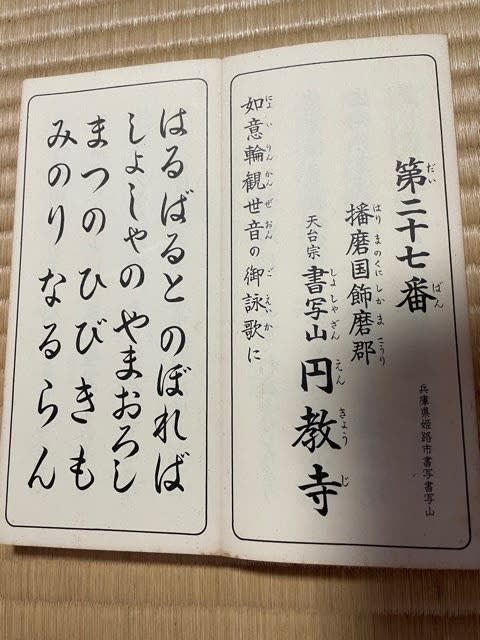 第二十七番
だいばん
兵庫県姫路市書写書写山
播磨国飾磨郡
はりまのくにしかまこうり
天台宗 書写山 円教寺
しよしやざんえんきようじ
如意輪観世音の御詠歌に
によいりんかんぜおんごえいか
はるばると のぼれば
しよしやの やまおろし
まつの ひびきも
みのり なるらん